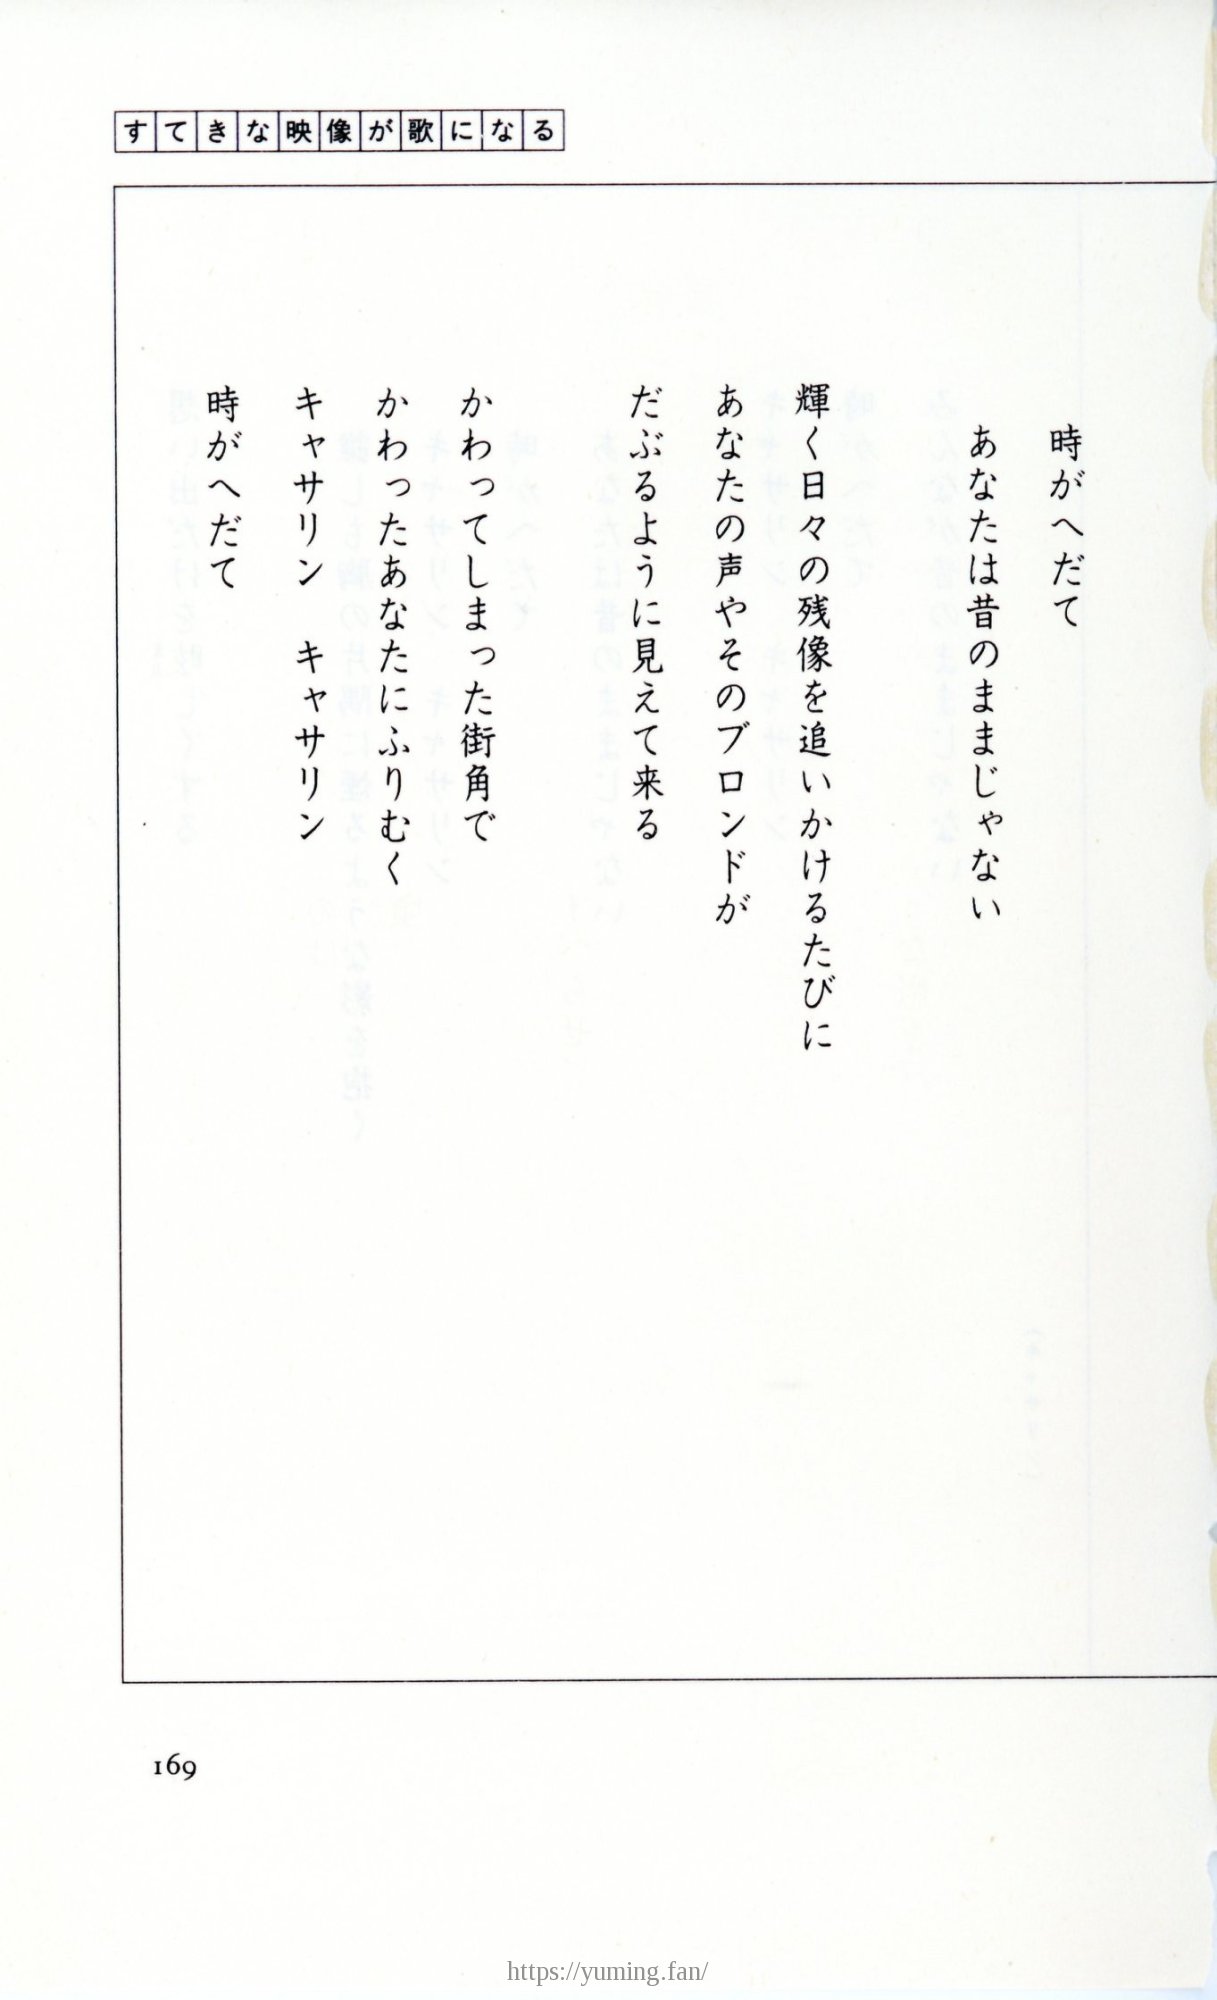 すてきな映像が歌になる
時がへだて
あなたは昔のままじゃない
輝く日々の残像を追いかけるたびに
あなたの声やそのブロンドが
だぶるように見えて来る
かわってしまった街角で
かわったあなたにふりむく
キャサリン　キャサリン
時がへだて
169
https://yuming.fan/